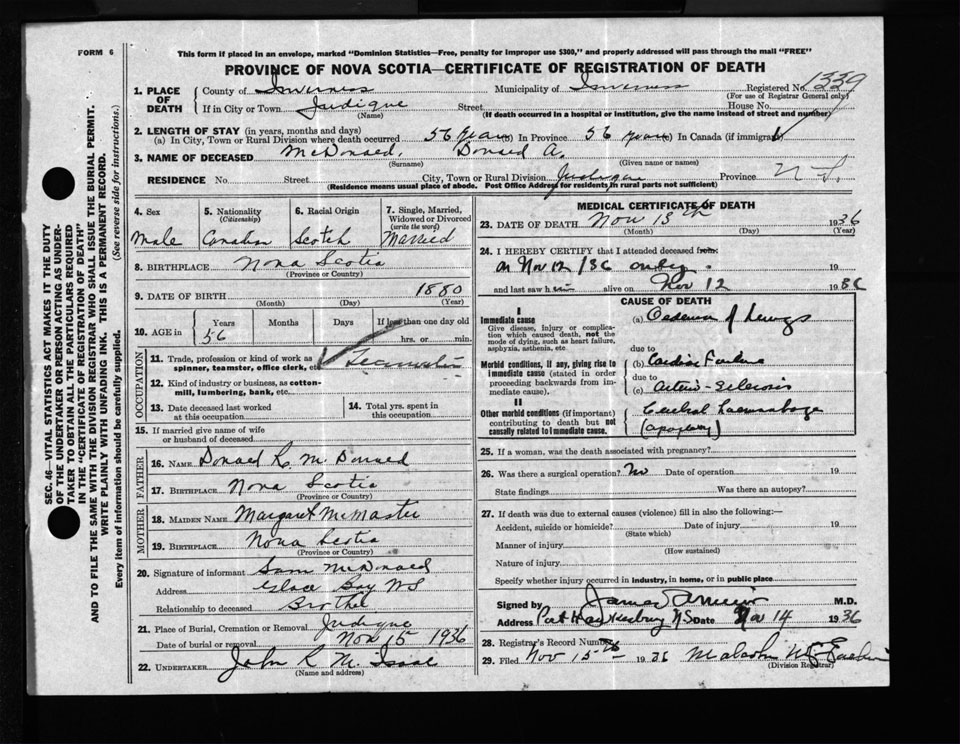 FORM 6
This form if placed in an envelope, marked "Dominion Statistics—Free, penalty for improper use $300," and properly addressed will pass through the mail "FREE"
PROVINCE OF NOVA SCOTIA—CERTIFICATE OF REGISTRATION OF DEATH
1. PLACE OF DEATH County of Inverness Municipality of Inverness Registered No. 1339
(For use of Registrar General only)
If in City or Town Judique Street House No.
(Name) (If death occurred in a hospital or institution, give the name instead of street and number)
2. LENGTH OF STAY (in years, months and days)
(a) In City, Town or Rural Division where death occurred 56 years In Province 56 years In Canada (if immigrant)
3. NAME OF DECEASED McDonald, Donald A.
(Surname) (Given name or names)
RESIDENCE No. Street City, Town or Rural Division Judique Province N.S.
(Residence means usual place of abode. Post Office Address for residents in rural parts not sufficient)
SEC. 46—VITAL STATISTICS ACT MAKES IT THE DUTY
OF THE UNDERTAKER OR PERSON ACTING AS UNDERTAKER TO OBTAIN ALL THE PARTICULARS REQUIRED
IN THE "CERTIFICATE OF REGISTRATION OF DEATH"
AND TO FILE THE SAME WITH THE DIVISION REGISTRAR WHO SHALL ISSUE THE BURIAL PERMIT.
WRITE PLAINLY WITH UNFADING INK. THIS IS A PERMANENT RECORD.
Every item of information should be carefully supplied. (See reverse side for instructions.)
4. Sex 5. Nationality (Citizenship) 6. Racial Origin 7. Single, Married, Widowed or Divorced (write the word)
Male Canadian Scotch Married
8. BIRTHPLACE Nova Scotia
(Province or Country)
9. DATE OF BIRTH 1880
(Month) (Day) (Year)
10. AGE in Years Months Days If less than one day old
56 hrs. or min.
OCCUPATION
11. Trade, profession or kind of work as spinner, teamster, office clerk, etc. Teamster
12. Kind of industry or business, as cotton-mill, lumbering, bank, etc.
13. Date deceased last worked at this occupation 14. Total yrs. spent in this occupation
15. If married give name of wife or husband of deceased
FATHER
16. NAME Donald R. McDonald
17. BIRTHPLACE Nova Scotia
(Province or Country)
MOTHER
18. MAIDEN NAME Margaret McMaster
19. BIRTHPLACE Nova Scotia
(Province or Country)
20. Signature of informant Sam McDonald
Address Glace Bay NS
Relationship to deceased Brother
21. Place of Burial, Cremation or Removal Judique
Date of burial or removal Nov 15 1936
22. UNDERTAKER John R McIsaac
(Name and address)
MEDICAL CERTIFICATE OF DEATH
23. DATE OF DEATH Nov 13th 1936
(Month) (Day) (Year)
24. I HEREBY CERTIFY that I attended deceased from:
on Nov 12/36 only. 19
and last saw him alive on Nov 12 1936
CAUSE OF DEATH
I
Immediate cause (a) Oedema of lungs
Give disease, injury or complication which caused death, not the mode of dying, such as heart failure, asphyxia, asthenia, etc.
due to
Morbid conditions, if any, giving rise to immediate cause (stated in order proceeding backwards from immediate cause). (b) Cardiac Failure
due to
(c) Arterio-sclerosis
II
Other morbid conditions (if important) contributing to death but not causally related to immediate cause. Cerebral haemorrhage
(apoplexy)
25. If a woman, was the death associated with pregnancy?
26. Was there a surgical operation? No Date of operation 19
State findings Was there an autopsy?
27. If death was due to external causes (violence) fill in also the following:—
Accident, suicide or homicide? Date of injury 19
(State which)
Manner of injury
(How sustained)
Nature of injury
Specify whether injury occurred in industry, in home, or in public place
Signed by James M.D.
Address Port Hawkesbury NS Date Nov 14 1936
28. Registrar's Record Number
29. Filed Nov 15th 1936 Malcolm
(Division Registrar)